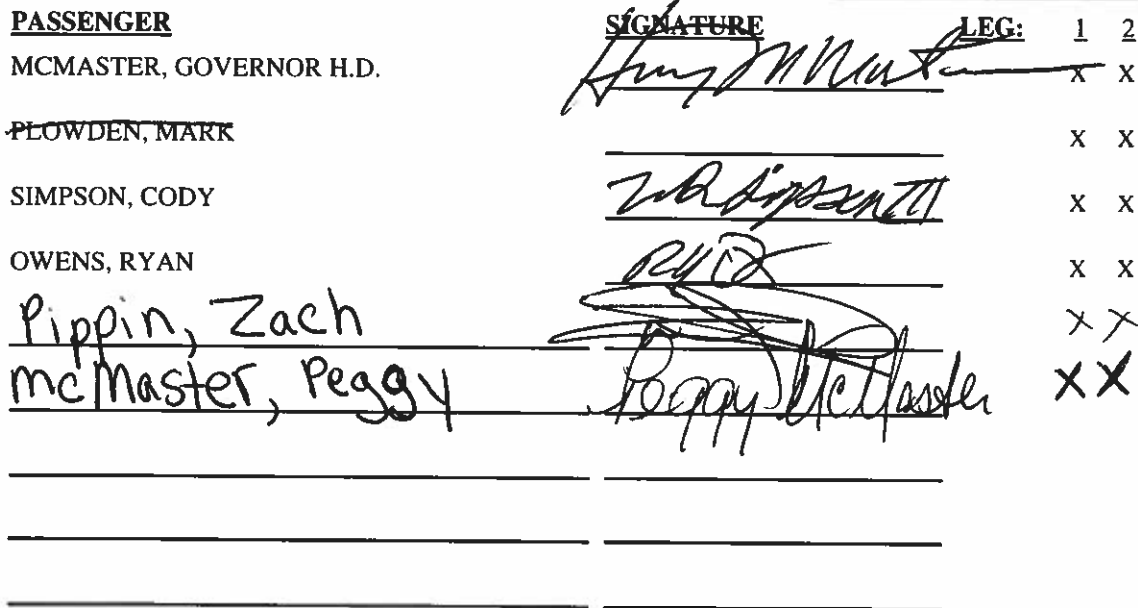 PASSENGER SIGNATURE LEG: 1 2
MCMASTER, GOVERNOR H.D. Henry McMaster X X
PLOWDEN, MARK X X
SIMPSON, CODY Simpson III X X
OWENS, RYAN X X
Pippin, Zach X X
McMaster, Peggy Peggy McMaster X X